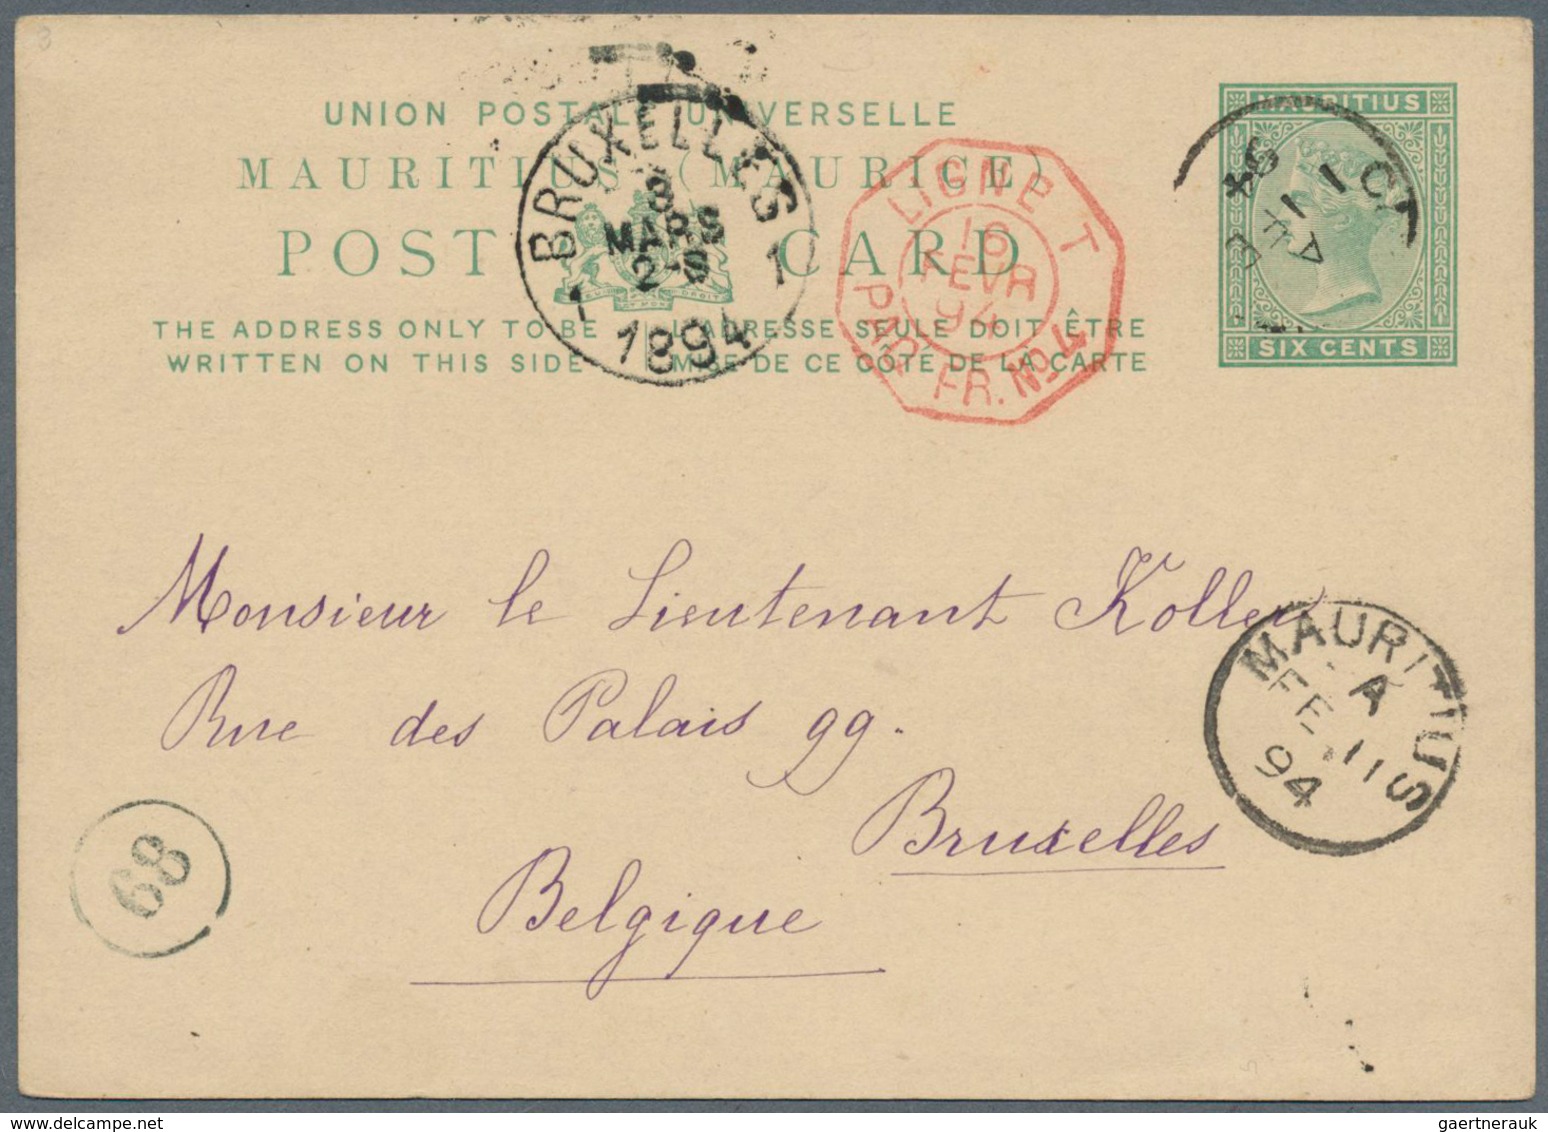 UNION POSTALE UNIVERSELLE
MAURITIUS (MAURICE)
POST CARD
THE ADDRESS ONLY TO BE
WRITTEN ON THIS SIDE
L'ADRESSE SEULE DOIT ÊTRE
MISE DE CE CÔTÉ DE LA CARTE
BRUXELLES
8
MARS
2-S
1 1
1894
LIGNE T
16
FEVR
94
PAQ. FR. No 4
MAURITIUS
SIX CENTS
94
Monsieur le Lieutenant Koller
Rue des Palais 99.
Bruxelles
Belgique
MAURITIUS
A
FE 11
94
68
gaertnerauk.com